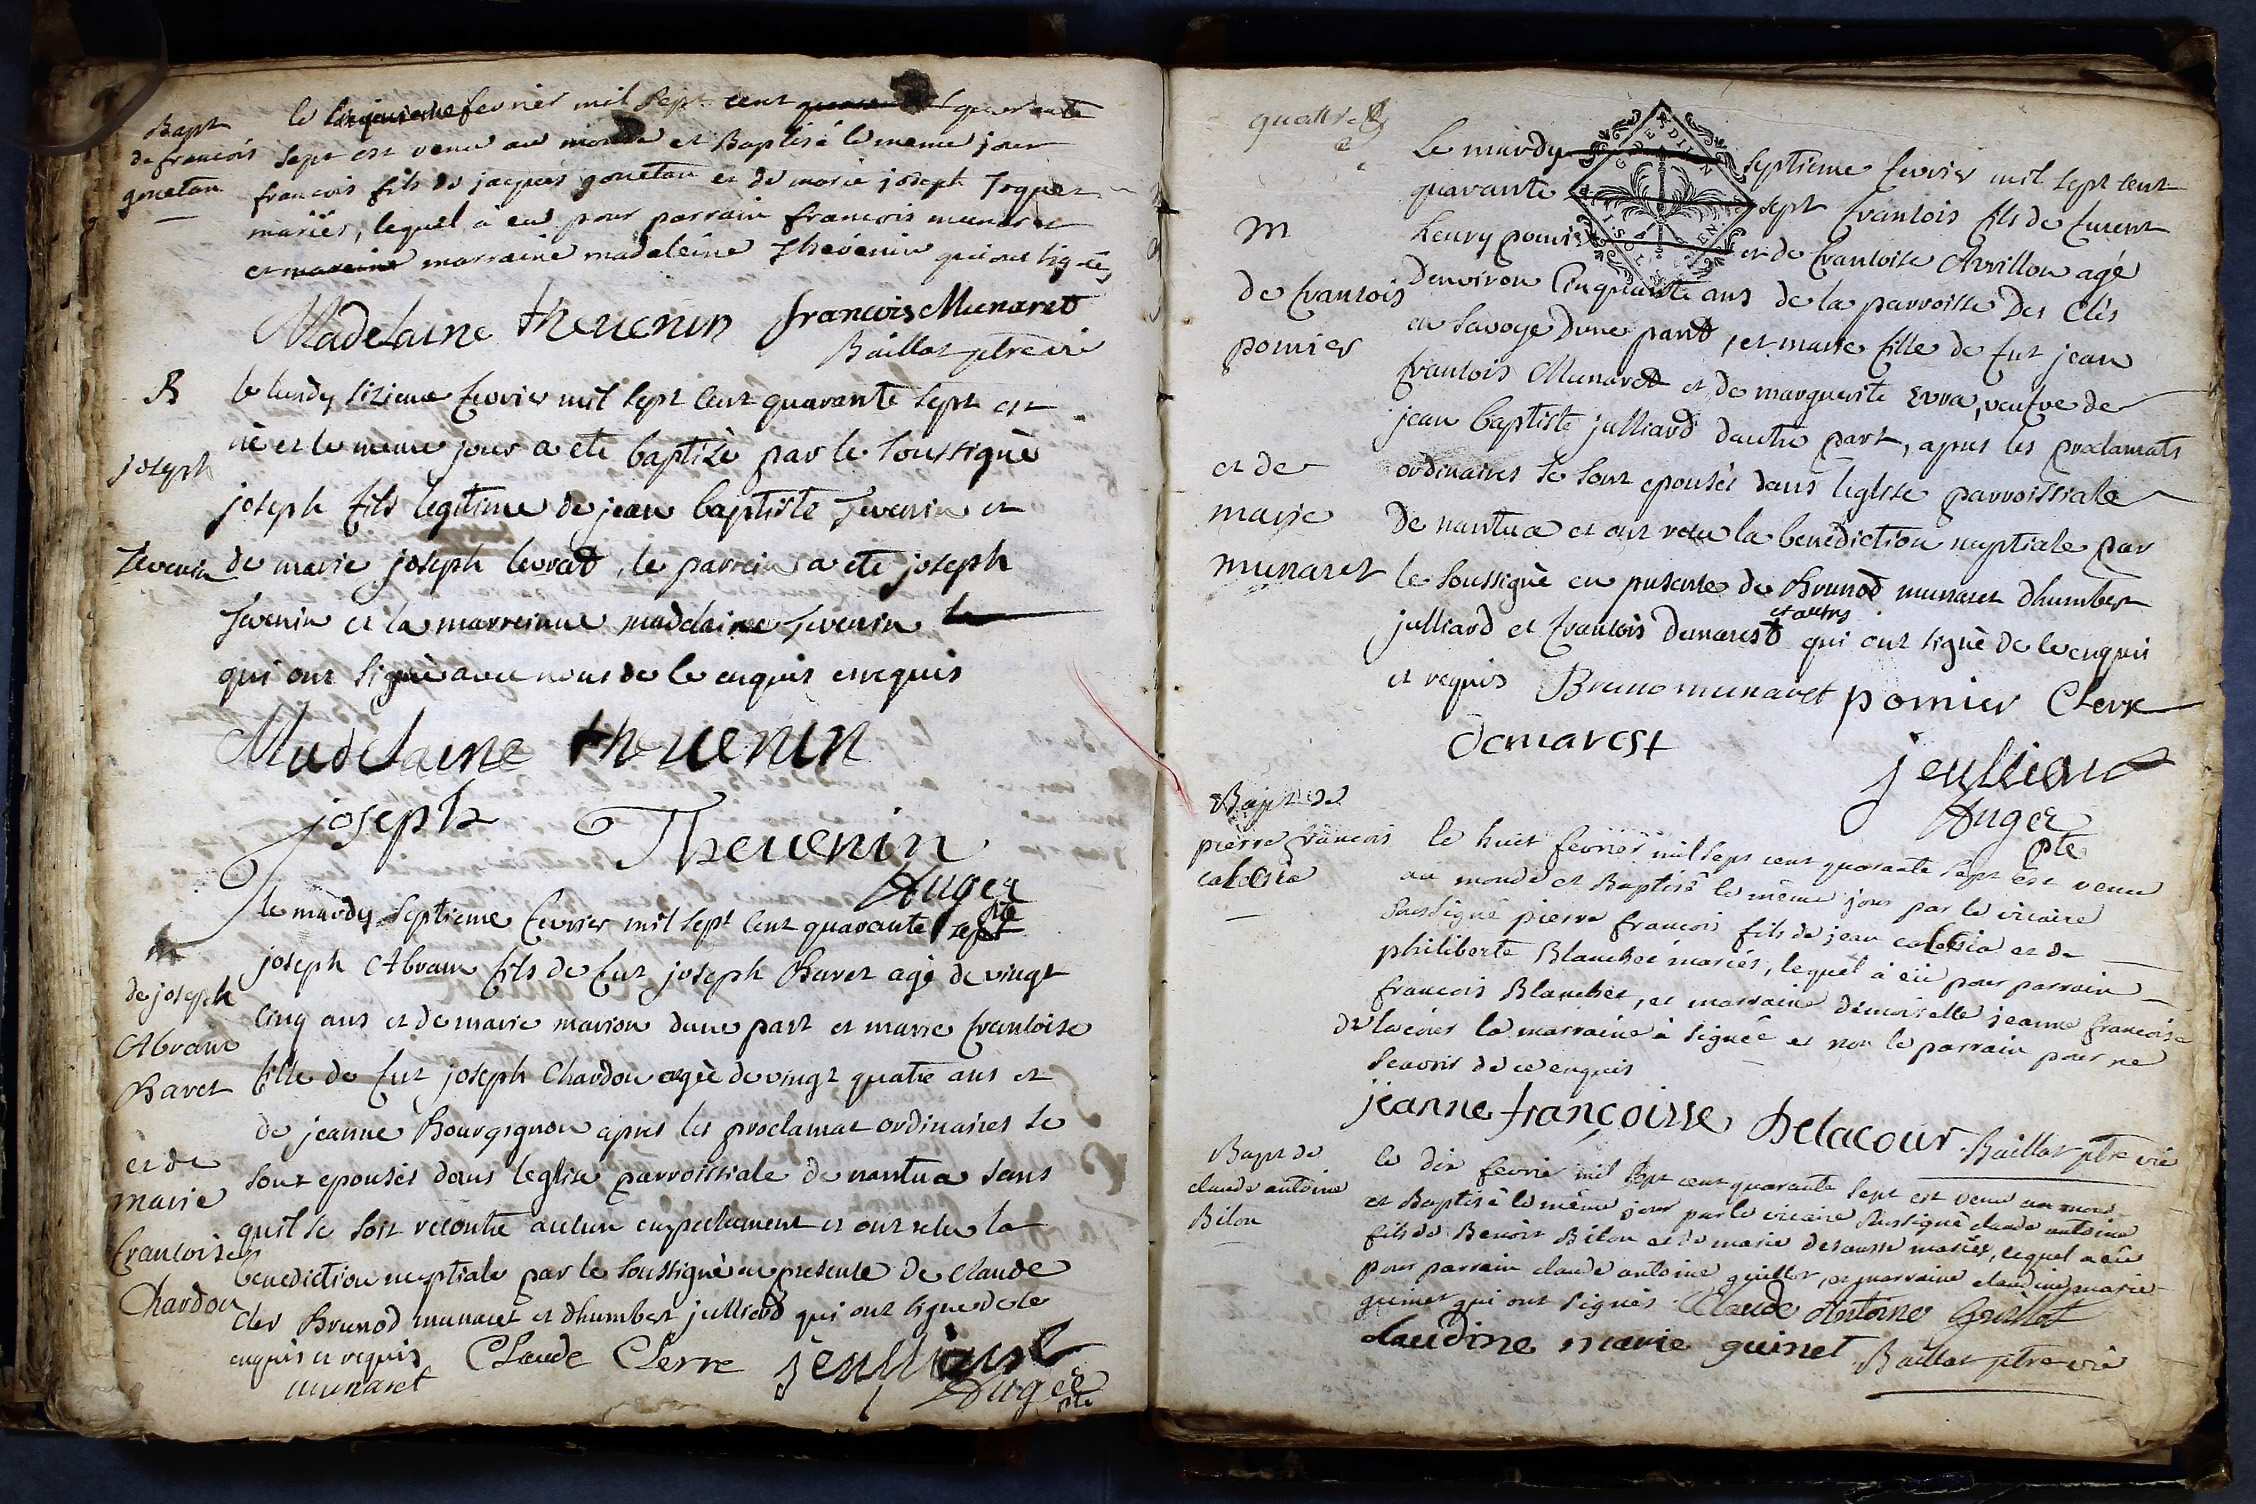 Bapt
de francois
gouetan
le cinquieme fevrier mil sept cent quarante
sept est venu au monde et Baptisé le meme jour
francois fils de jacques gouetan et de marie joseph
mariés, lequel a eu pour parrain francois munaret
et marraine madeleine Thévenin qui ont signés
Madelaine thevenin francois Munaret
Baillat ptre vic
B
joseph
Tevenin
le lundy sizieme fevrier mil sept cent quarante sept est
né et le meme jour a ete baptizè par le soussignè
joseph fils legitime de jean baptiste Tevenin et
de marie joseph levrat, le parrein a ete joseph
Tevenin et la marreinne madelaine Tevenin
qui ont signè avec nous de ce enquis et requis
Madelaine thevenin
joseph Thevenin
Auger
pte
m
de joseph
Abram
Bavet
et de
marie
francoise
Chardon
le mardy septieme fevrier mil sept cent quarante sept
joseph Abram fils de fut joseph Bavet agé de vingt
cinq ans et de marie marion dune part et marie francoise
fille de fut joseph Chardon agèe de vingt quatre ans et
de jeanne Bourgignon apres les proclamat ordinaires se
sont epousés dans leglise parroissiale de nantua sans
quil se soit recontre aucun enpechement et ont recu la
benediction nuptiale par le soussignè en presence de claude
cler Brunod munaret et dhumbert julliard qui ont signe de ce
enquis et requis Claude Clerre jeulliard
munaret
Auger
pte
quatre
m
de francois
pomier
et de
marie
munaret
Le mardy septieme fevrier mil sept cent
quarante sept francois fils de furent
henry pomier et de francoise Avrillon agé
denviron cinquante ans de la parroisse des Clés
en savoye dune part, et marie fille de fut jean
francois Munaret et de marguerite Evra, veufve de
jean baptiste julliard dautre part, apres les proclamats
ordinaires se sont epousés dans leglise parroissiale
de nantua et ont recu la benediction nuptiale par
le soussignè en presence de Brunod munaret dhumbert
julliard et francois demarest et autres qui ont signè de ce enquis
et requis Bruno munaret pomier Clerre
demarest
jeulliard
Auger
pte
Bapt de
pierre francois
le huit fevrier mil sept cent quarante sept est venu
au monde et Baptisé le même jour par le vicaire
soussigné pierre francois fils de jean et de
philiberte Blanchet mariés, lequel à eü pour parrain
francois Blanchet, et marraine demoiselle jeanne francoise
de lacour la marraine à signée et non le parrain pour ne
scavoir de ce enquis
jeanne françoisse Delacour Baillat ptre vic
Bapt de
claude antoine
Bilon
le dix fevrier mil sept cent quarante sept est venu au monde
et Baptisé le même jour par le vicaire sussigné claude antoine
fils de Benoit Bilon et de marie desausse mariés, lequel a eû
pour parrain claude antoine guillot, et marraine claudine marie
guinet qui ont signés Claude Antoine Guillot
claudine marie guinet Baillat ptre vic